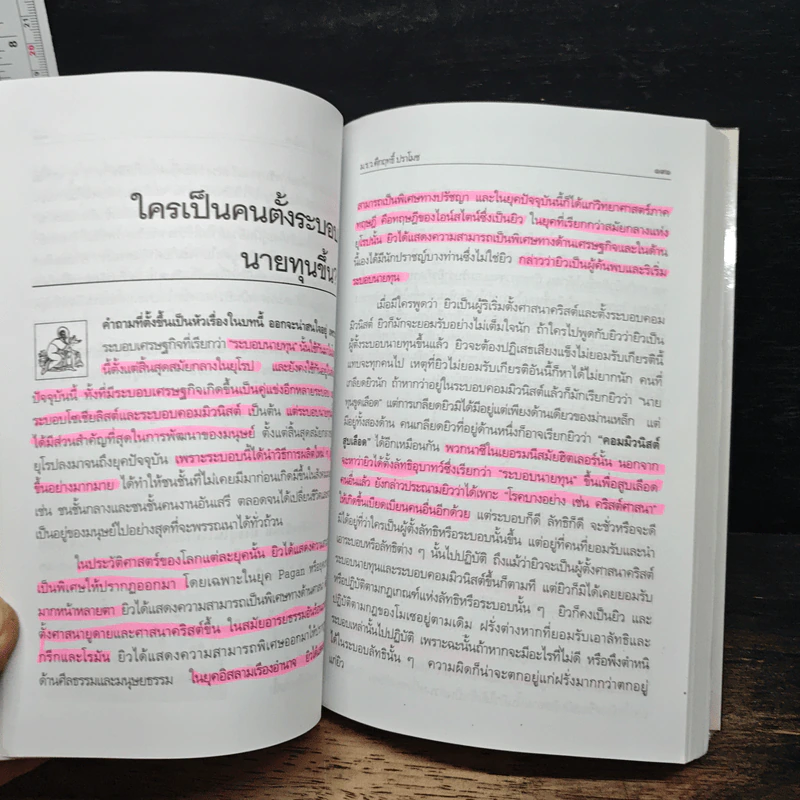 ใครเป็นคนตั้งระบอบ
นายทุนขึ้นมา
คำถามที่ตั้งขึ้นเป็นหัวเรื่องในบทนี้ ออกจะน่าสนใจอยู่
ระบอบเศรษฐกิจที่เรียกว่า "ระบอบนายทุน" นั้นใช้กัน
นี้ตั้งแต่สิ้นสุดสมัยกลางในยุโรป และยังคงใช้กันอยู่
ปัจจุบันนี้ ทั้งที่มีระบอบเศรษฐกิจเกิดขึ้นเป็นคู่แข่งอีกหลายระบอบ
ระบอบโซเชียลิสต์และระบอบคอมมิวนิสต์ เป็นต้น แต่ระบอบนายทุน
ได้มีส่วนสำคัญที่สุดในการพัฒนาของมนุษย์ ตั้งแต่สิ้นสมัยกลาง
ยุโรปลงมาจนถึงยุคปัจจุบัน เพราะระบอบนี้ได้นำวิธีการผลิตใหม่ ๆ
ขึ้นอย่างมากมาย ได้ทำให้ชนชั้นที่ไม่เคยมีมาก่อนเกิดมีขึ้นในสังคม
เช่น ชนชั้นกลางและชนชั้นคนงานอันเสรี ตลอดจนได้เปลี่ยนชีวิตและ
เป็นอยู่ของมนุษย์ไปอย่างสุดที่จะพรรณนาได้ทั่วถ้วน
ในประวัติศาสตร์ของโลกแต่ละยุคนั้น ยิวได้แสดงความ
เป็นพิเศษให้ปรากฏออกมา โดยเฉพาะในยุค Pagan หรือยุค
มากหน้าหลายตา ยิวได้แสดงความสามารถเป็นพิเศษทางด้านศาสนา
ตั้งศาสนายูดายและศาสนาคริสต์ขึ้น ในสมัยอารยธรรม
กรีกและโรมัน ยิวได้แสดงความสามารถพิเศษออกมาให้
ด้านศีลธรรมและมนุษยธรรม ในยุคอิสลามเรืองอำนาจ ยิวได้
ม.ร.ว.คึกฤทธิ์ ปราโมช
สามารถเป็นพิเศษทางปรัชญา และในยุคปัจจุบันนี้ก็ได้แก่วิทยาศาสตร์ภาค
ทฤษฎี คือทฤษฎีของไอน์สไตน์ซึ่งเป็นยิว ในยุคที่เรียกกว่าสมัยกลางแห่ง
ยุโรปนั้น ยิวได้แสดงความสามารถเป็นพิเศษทางด้านเศรษฐกิจและในด้าน
นี้เองได้มีนักปราชญ์บางท่านซึ่งไม่ใช่ยิว กล่าวว่ายิวเป็นผู้ค้นพบและริเริ่ม
ระบอบนายทุน
เมื่อมีใครพูดว่า ยิวเป็นผู้ริเริ่มตั้งศาสนาคริสต์และตั้งระบอบคอม
มิวนิสต์ ยิวก็มักจะยอมรับอย่างไม่เต็มใจนัก ถ้าใครไปพูดกับยิวว่ายิวเป็น
ผู้ตั้งระบอบนายทุนขึ้นแล้ว ยิวจะต้องปฏิเสธเสียงแข็งไม่ยอมรับเกียรตินี้
แทบจะทุกคนไป เหตุที่ยิวไม่ยอมรับเกียรติอันนี้ก็หาได้ไม่ยากนัก คนที่
เกลียดยิวนัก ถ้าหากว่าอยู่ในระบอบคอมมิวนิสต์แล้วก็มักเรียกยิวว่า "นาย
ทุนขูดเลือด" แต่การเกลียดยิวมิได้มีอยู่แต่เพียงด้านเดียวของม่านเหล็ก แต่
มีอยู่ทั้งสองด้าน คนเกลียดยิวที่อยู่ด้านหนึ่งก็อาจเรียกยิวว่า "คอมมิวนิสต์
สูบเลือด" ได้อีกเหมือนกัน พวกนาซีในเยอรมนีสมัยฮิตเลอร์นั้น นอกจาก
จะหาว่ายิวได้ตั้งลัทธิอุบาทว์ซึ่งเรียกว่า "ระบอบนายทุน" ขึ้นเพื่อสูบเลือด
คนอื่นแล้ว ยังกล่าวประณามยิวว่าได้เพาะ "โรคบางอย่าง เช่น คริสต์ศาสนา"
ให้เกิดขึ้นเบียดเบียนคนอื่นอีกด้วย แต่ระบอบก็ดี ลัทธิก็ดี จะชั่วหรือจะดี
มิได้อยู่ที่ว่าใครเป็นผู้ตั้งลัทธิหรือระบอบนั้นขึ้น แต่อยู่ที่คนที่ยอมรับและนำ
เอาระบอบหรือลัทธิต่าง ๆ นั้นไปปฏิบัติ ถึงแม้ว่ายิวจะเป็นผู้ตั้งศาสนาคริสต์
ระบอบนายทุนและระบอบคอมมิวนิสต์ขึ้นก็ตามที แต่ยิวก็มิได้เคยยอมรับ
หรือปฏิบัติตามกฎเกณฑ์แห่งลัทธิหรือระบอบนั้น ๆ ยิวก็คงเป็นยิว และ
ปฏิบัติตามกฎของโมเซอยู่ตามเดิม ฝรั่งต่างหากที่ยอมรับเอาลัทธิและ
ระบอบเหล่านั้นไปปฏิบัติ เพราะฉะนั้นถ้าหากจะมีอะไรที่ไม่ดี หรือพึงตำหนิ
ได้ในระบอบลัทธินั้น ๆ ความผิดก็น่าจะตกอยู่แก่ฝรั่งมากกว่าตกอยู่
แก่ยิว